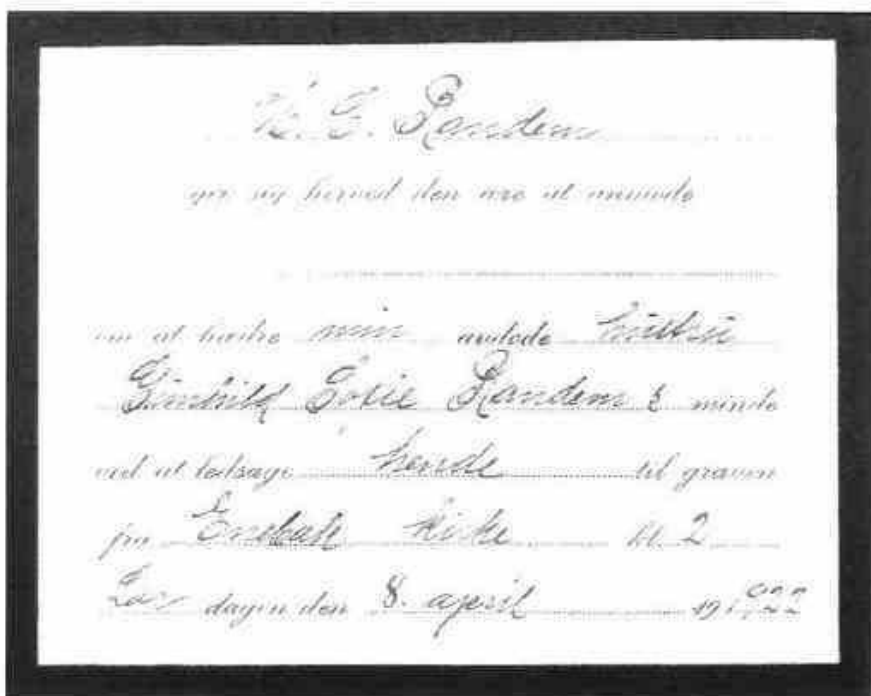 G. Randem
gir sig herved den ære at anmode
om at hædre min avdøde hustru
Gunhild Sofie Randem s minde
ved at ledsage hende til graven
fra Enebak kirke kl. 2
Lør dagen den 8. april 1922